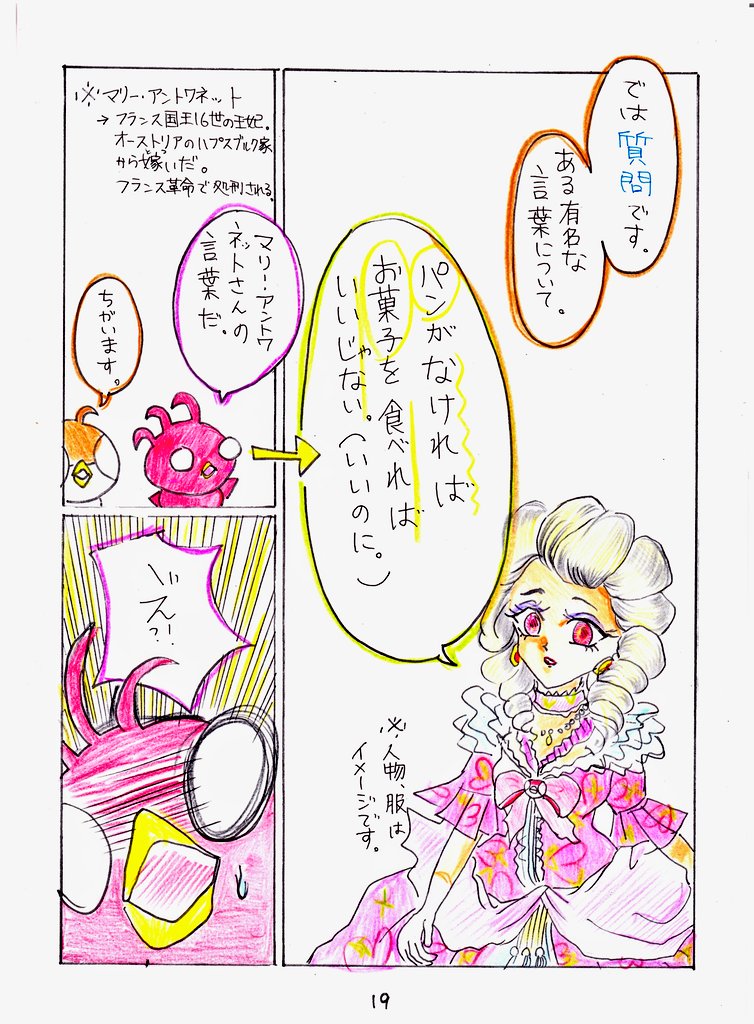 では質問です。
ある有名な
言葉について。
パンがなければ
お菓子を食べれば
いいじゃない。(いいのに。)
※人物、服は
イメージです。
※マリー・アントワネット
→フランス国王16世の王妃。
オーストリアのハプスブルク家
から嫁いだ。
とつ
フランス革命で処刑される。
マリー・アントワ
ネットさんの
言葉だ。
ちがいます。
え?!
19